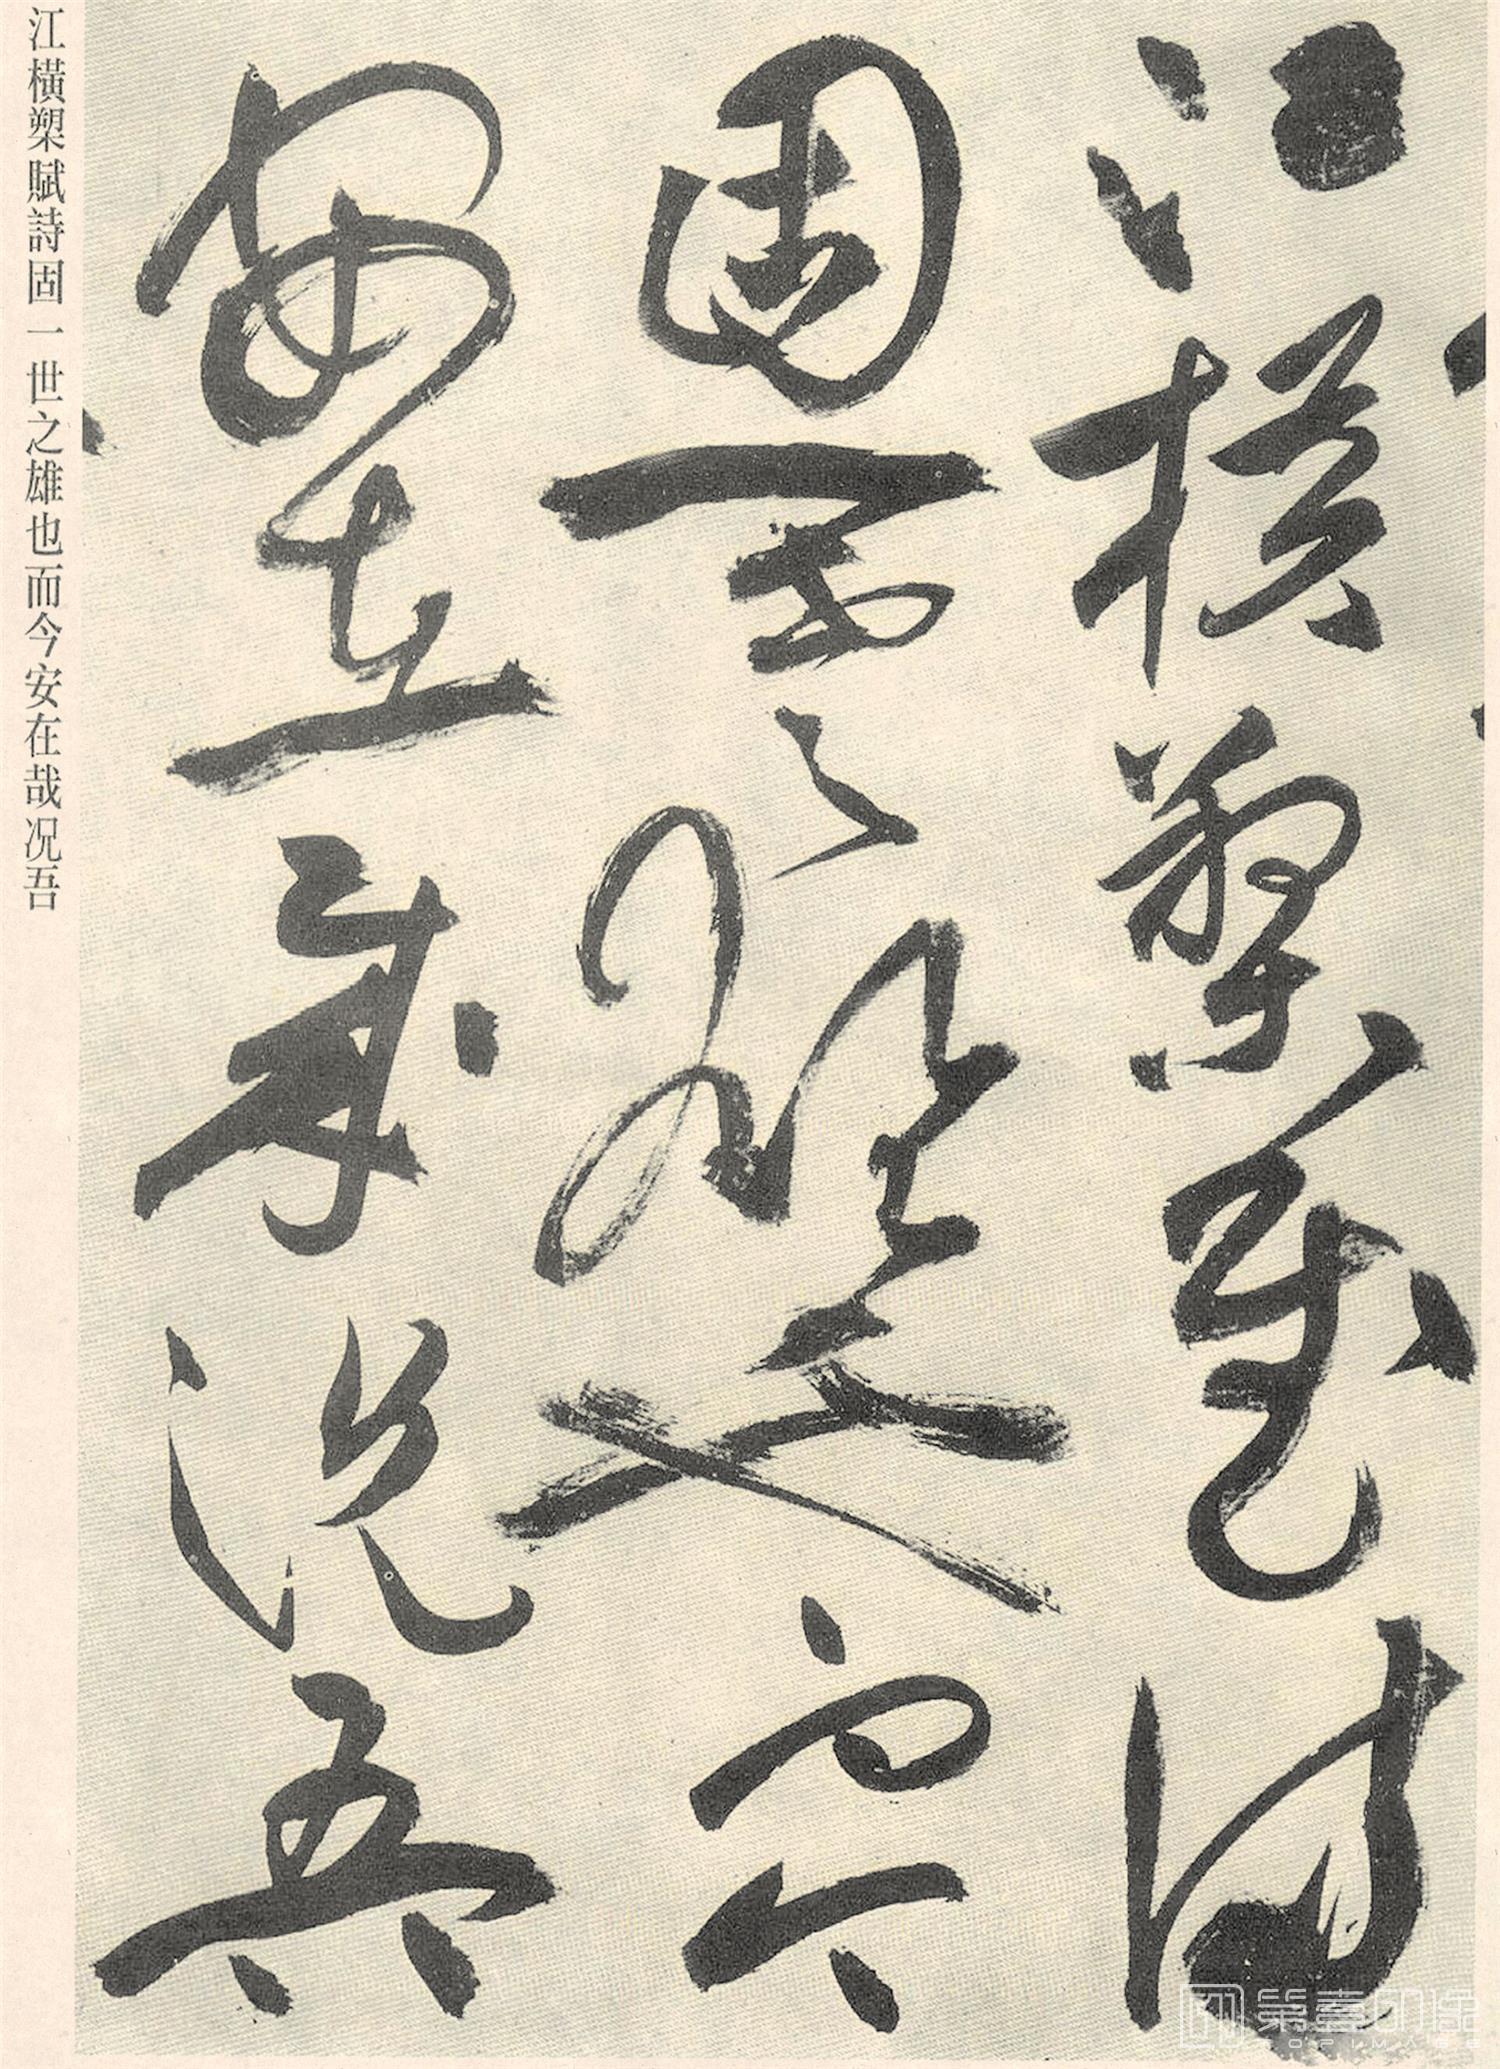 江橫槊賦詩
固一世之雄也而今
安在哉況吾
江橫槊賦詩固一世之雄也而今安在哉況吾